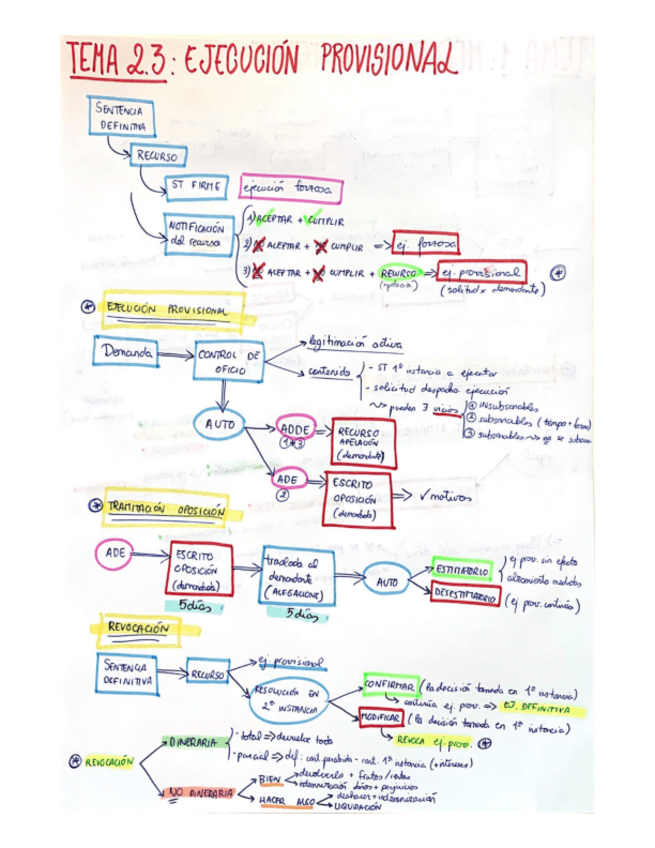 TEMA 2.3: EJECUCIÓN PROVISIONAL
SENTENCIA
DEFINITIVA
RECURSO
ST FIRME
ejecución forzosa
NOTIFICACIÓN
del recurso
1) ACEPTAR + CUMPLIR
2) X ACEPTAR + X CUMPLIR => ej. forzosa
3) X ACEPTAR + X CUMPLIR + RECURSO => ej. provisional *
(solicitud x demandante)
* EJECUCIÓN PROVISIONAL
Demanda
CONTROL DE
OFICIO
legitimación activa
contenido
- ST 1ª instancia a ejecutar
- solicitud despacho ejecución
~> pueden ∃ vicios
① insubsanables
② subsanables (tiempo + forma)
③ subsanables ~> no se subsana
AUTO
ADDE
1*3
RECURSO
APELACIÓN
(demandante)
ADE
②
ESCRITO
OPOSICIÓN
(demandado)
=> ✓ motivos
* TRAMITACIÓN OPOSICIÓN
ADE
ESCRITO
OPOSICIÓN
(demandado)
5 días
traslado al
demandante
(ALEGACIONES)
5 días
AUTO
ESTIMATORIO
ej prov. sin efecto
alzamiento medidas
DESESTIMATORIO (ej prov. continúa)
REVOCACIÓN
SENTENCIA
DEFINITIVA
RECURSO
ej. provisional
RESOLUCIÓN EN
2ª INSTANCIA
CONFIRMAR (la decisión tomada en 1ª instancia)
continúa ej. prov. => EJ. DEFINITIVA
MODIFICAR (la decisión tomada en 1ª instancia)
REVOCA ej. prov. *
* REVOCACIÓN
DINERARIA
- total => devuelve todo
- parcial => dif: cant. percibida - cant. 1ª instancia (+intereses)
NO DINERARIA
BIEN
devolverlo + frutos/rentas
indemnización daños + perjuicios
HACER ALGO
deshacer + indemnización
LIQUIDACIÓN